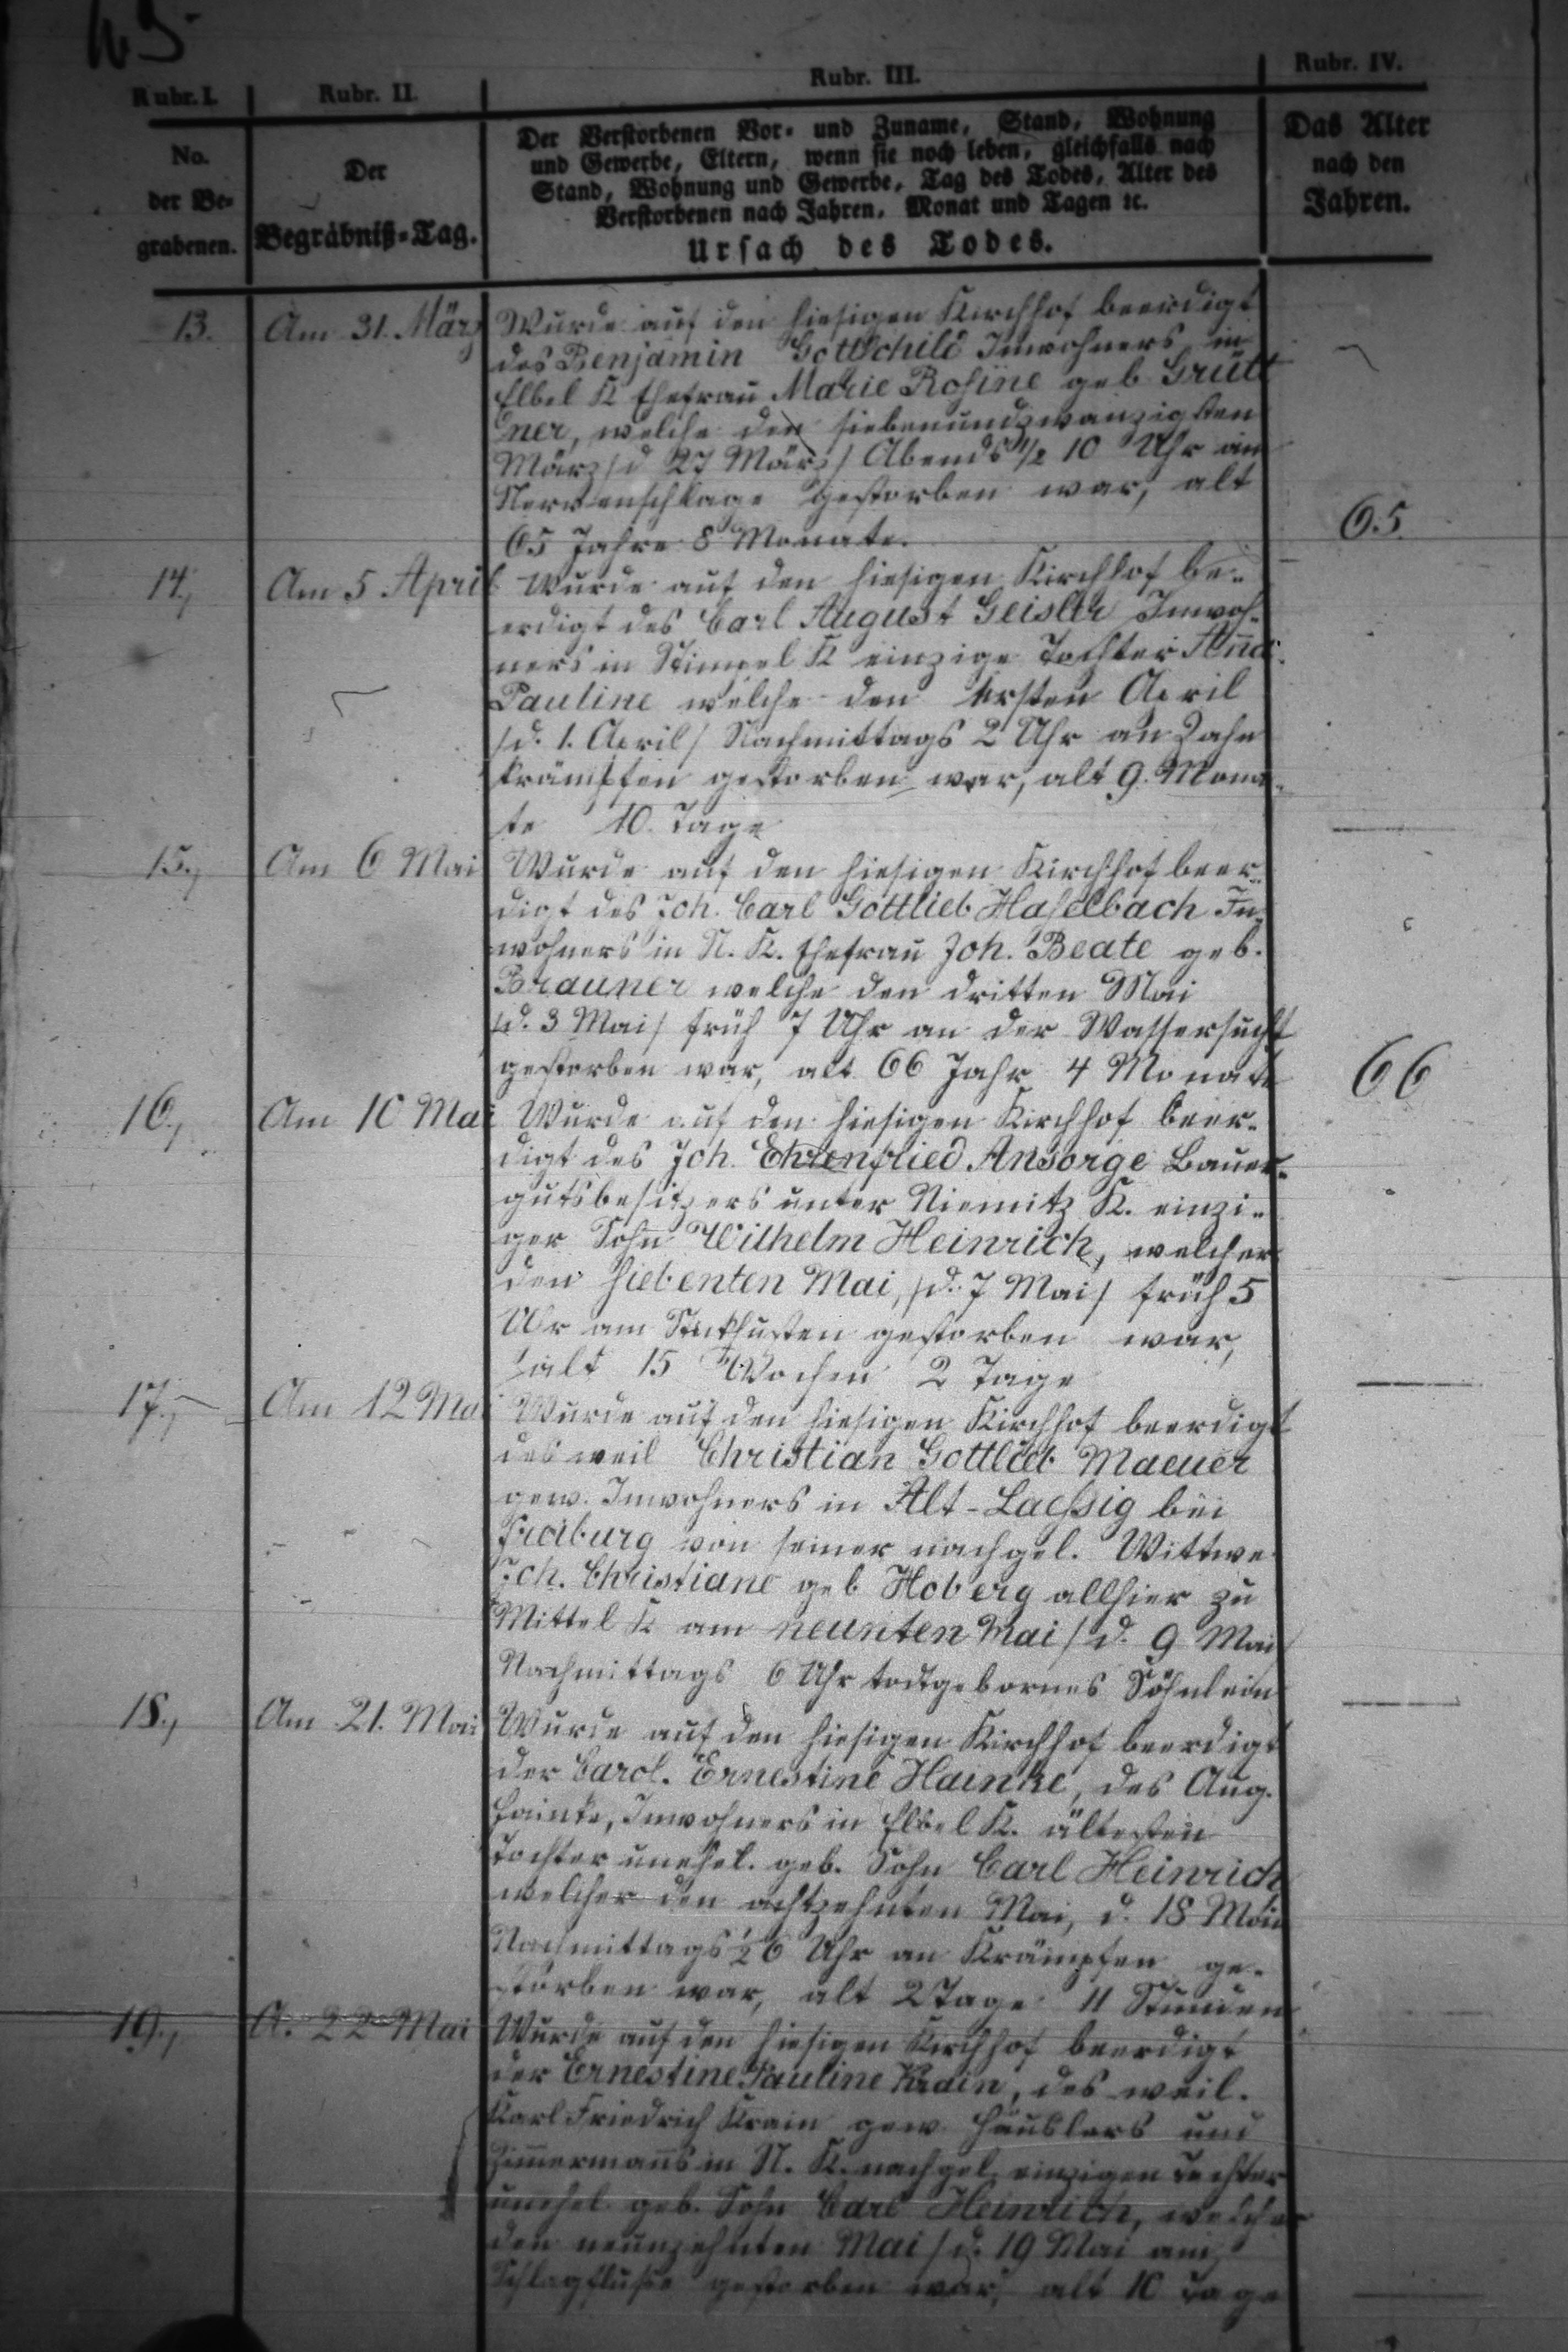 Rubr. I.
Rubr. II.
Rubr. III.
Rubr. IV.
No.
der Be-
grabenen.
Der
Begräbniß-Tag.
Der Verstorbenen Vor- und Zuname, Stand, Wohnung
und Gewerbe, Eltern, wenn sie noch leben, gleichfalls nach
Stand, Wohnung und Gewerbe, Tag des Todes, Alter des
Verstorbenen nach Jahren, Monat und Tagen ꝛc.
Ursach des Todes.
Das Alter
nach den
Jahren.
13.
Am 31. März
Wurde auf den hiesigen Kirchhof beerdigt
des Benjamin Gottschild Inwohners in
Elbel K Ehefrau Marie Rosine geb Grütt
ner, welche den siebenundzwanzigsten
März /d 27 März/ Abends 1/2 10 Uhr am
Nervenschlage gestorben war, alt
65 Jahre 8 Monate.
65.
14.,
Am 5 April
Wurde auf den hiesigen Kirchhof be-
erdigt des Carl August Geisler Inwoh-
ners in K einzige Tochter Anna
Pauline welche den ersten April
/d. 1. April/ Nachmittags 2 Uhr an Zahn
krämpfen gestorben war, alt 9. Mona-
te 10. Tage
15.,
Am 6 Mai
Wurde auf den hiesigen Kirchhof beer-
digt des Joh. Carl Gottlieb Haselbach In-
wohners in N. K. Ehefrau Joh. Beate geb.
Brauner welche den dritten Mai
/d. 3 Mai/ früh 7 Uhr an der Wassersucht
gestorben war, alt 66 Jahr 4 Monate
66
16.,
Am 10 Mai
Wurde auf den hiesigen Kirchhof beer-
digt des Joh. Ehrenfried Ansorge Bauer-
gutsbesitzers unter Niemitz K. einzi-
ger Sohn Wilhelm Heinrich, welcher
den siebenten Mai, /d. 7 Mai/ früh 5
Uhr am Stickhusten gestorben war,
alt 15 Wochen 2 Tage
17.,
Am 12 Mai
Wurde auf den hiesigen Kirchhof beerdigt
des weil Christian Gottlieb Maeuer
gew. Inwohners in Alt-Laessig bei
Freiburg von seiner nachgel. Wittwe
Joh. Christiane geb Hoberg allhier zu
Mittel K am neunten Mai /d. 9 Mai
Nachmittags 6 Uhr todtgebornes Söhnlein
18.,
Am 21. Mai
Wurde auf den hiesigen Kirchhof beerdigt
der Carol. Ernestine Hainke, des Aug.
Hainke, Inwohners in Elbel K. ältesten
Tochter unehel. geb. Sohn Carl Heinrich
welcher den achtzehnten Mai, d. 18 Mai
Nachmittags 1/2 6 Uhr an Krämpfen ge-
storben war, alt 2 Tage 11 Stunden
19.,
A. 22 Mai
Wurde auf den hiesigen Kirchhof beerdigt
der Ernestine Pauline Krain, des weil.
Karl Friedrich Krain gew. Häuslers und
Zimmermanns in N. K. nachgel. einzigen Tochter
unehel. geb. Sohn Carl Heinrich, welcher
den neunzehnten Mai /d. 19 Mai am
Schlagflusse gestorben war, alt 10 Tage